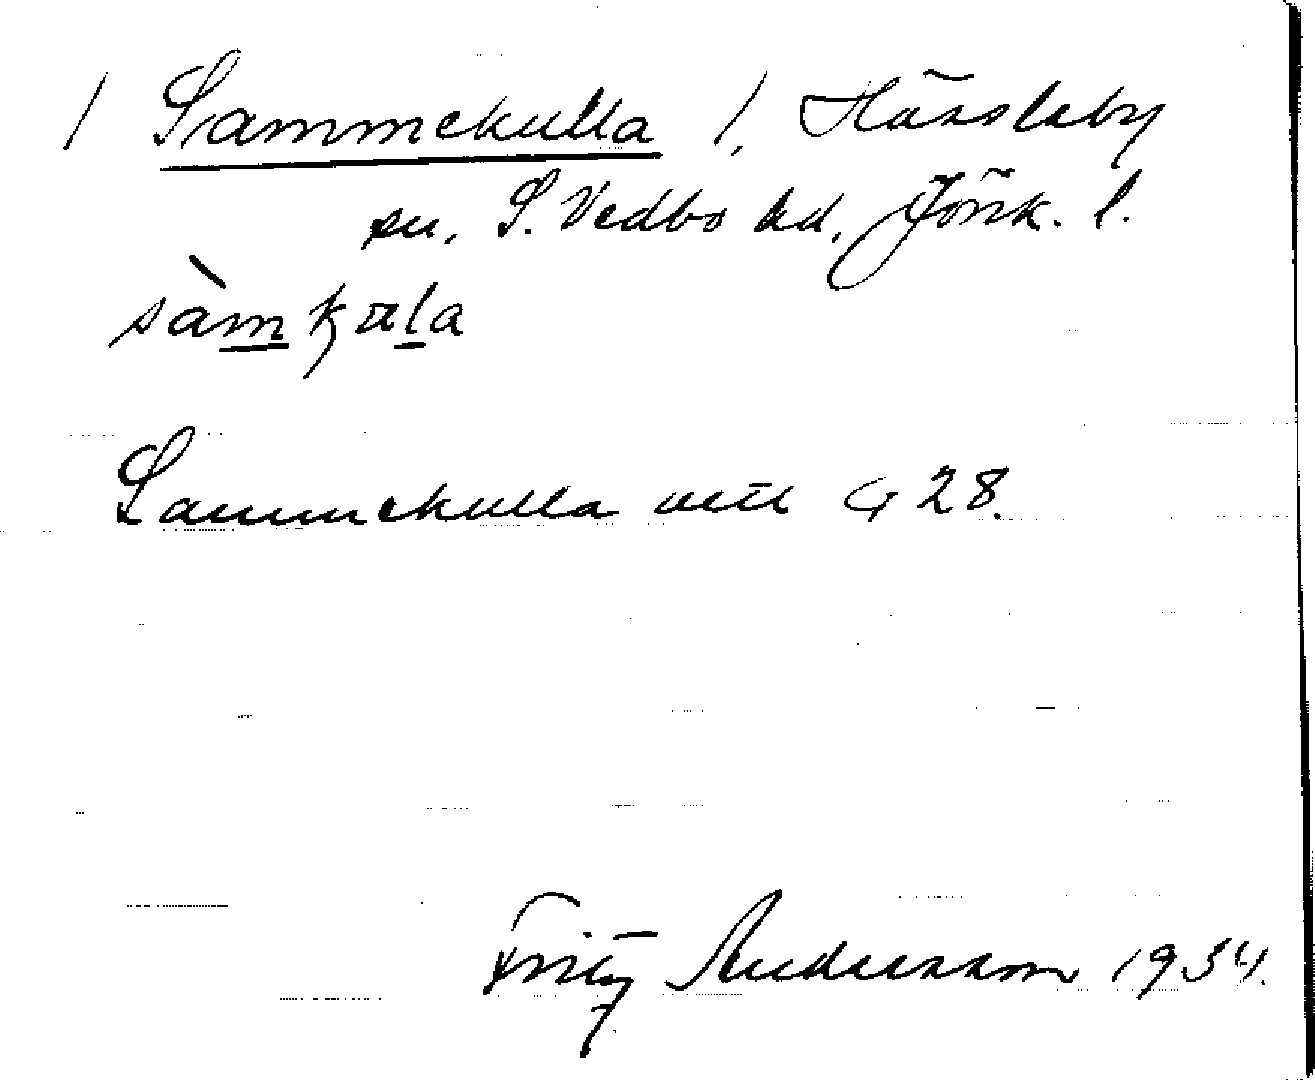 / Sammekulla /, Hässleby
sn, S. Vedbo hd, Jönk. l.
sàmkula
Sammekulla
G 28.
Fritz Andersson 1934.